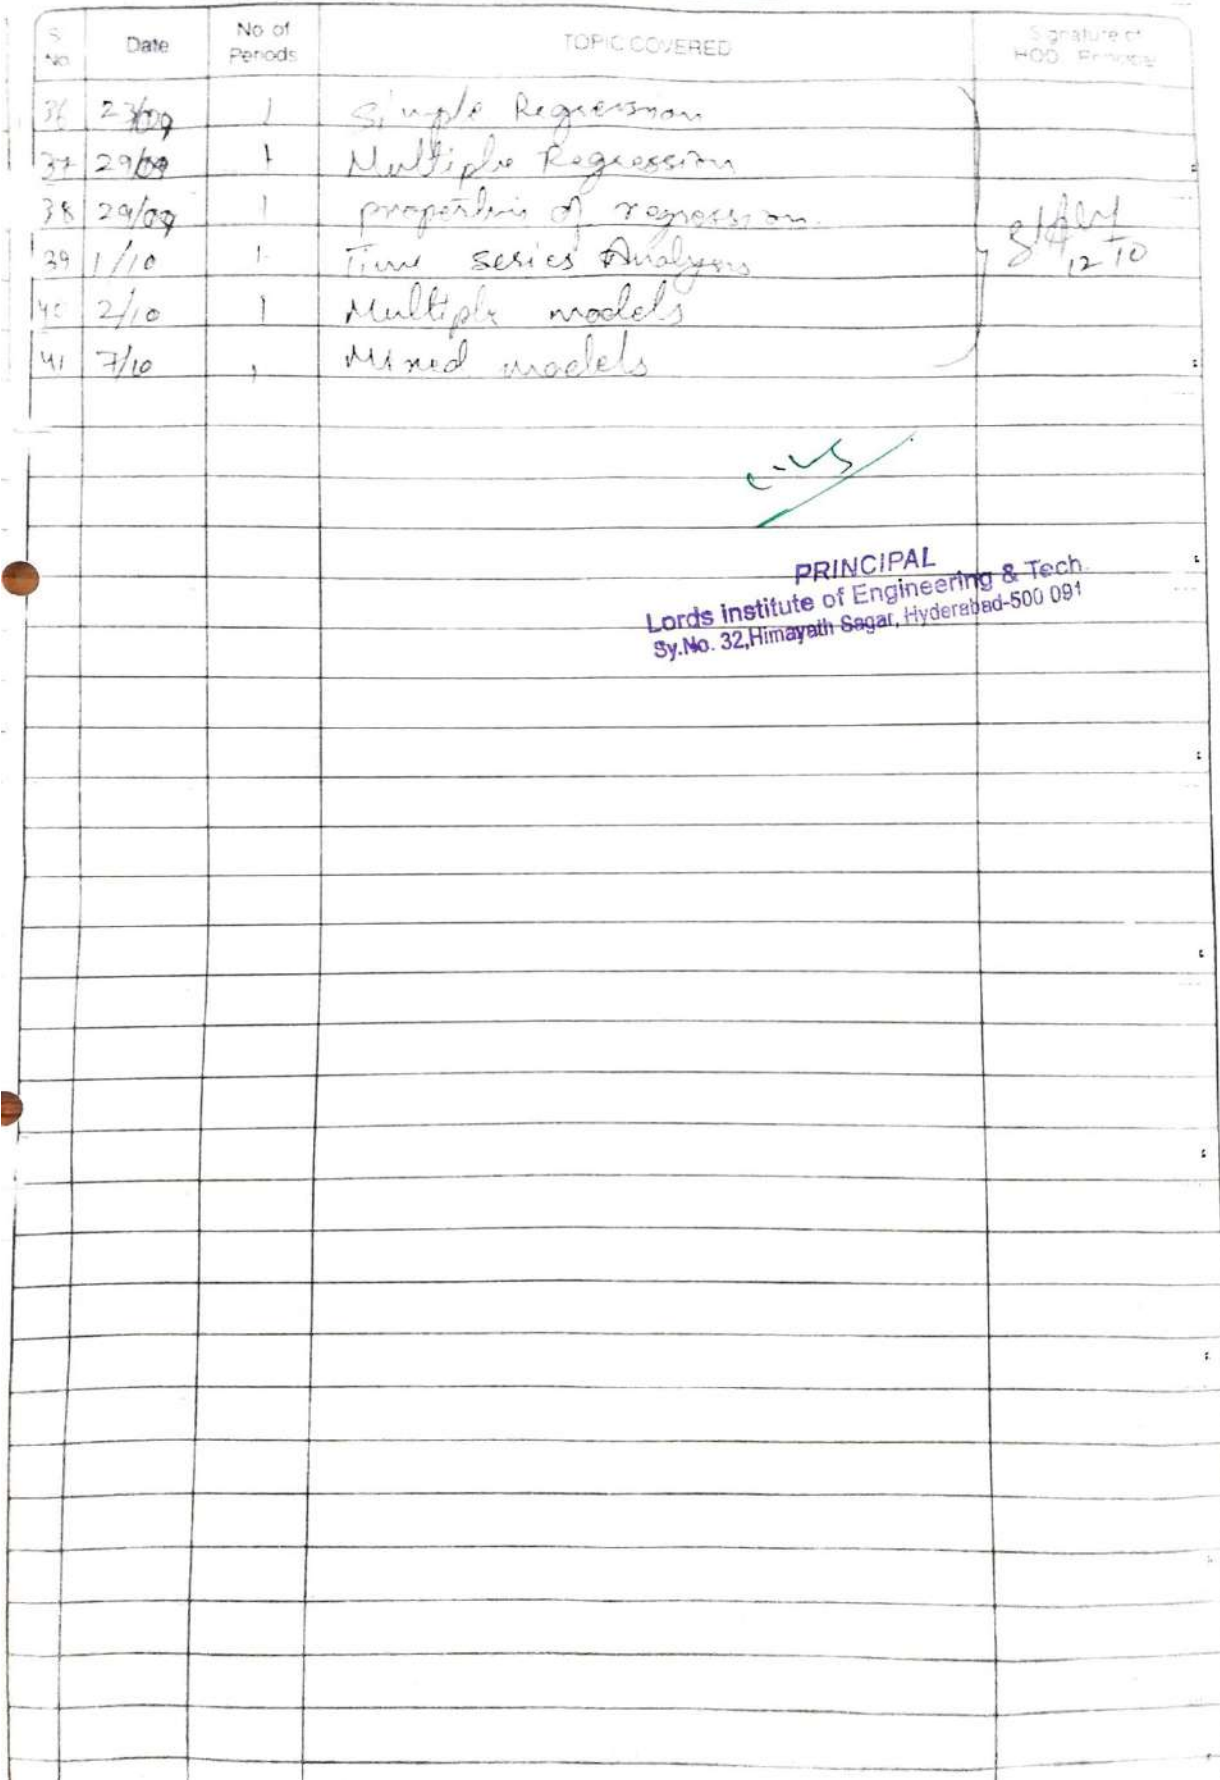 S. No. Date No of Periods TOPIC COVERED Signature of HOD Principal
36 23/09 1 Simple Regression
37 29/09 1 Multiple Regression
38 29/09 1 properties of regression.
39 1/10 1 Time series Analysis
40 2/10 1 Multiple models
41 7/10 1 Mixed models
12 10
PRINCIPAL
Lords Institute of Engineering & Tech.
Sy.No. 32, Himayath Sagar, Hyderabad-500 091